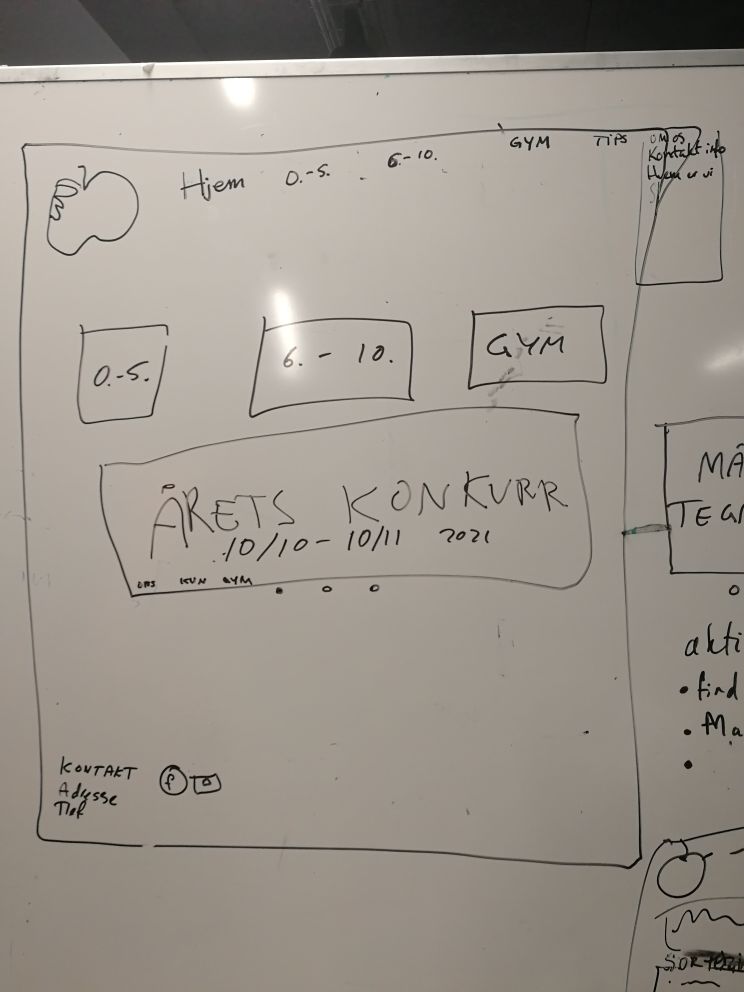 Hjem 0.-5. 6.-10. GYM TIPS OM OS
Kontakt info
Hvem er vi
0.-5. 6. - 10. GYM
ÅRETS KONKURR
10/10 - 10/11 2021
OBS KUN GYM
KONTAKT
Adresse
Tlef
MÅ
TEGN
akti
• find
• Ma